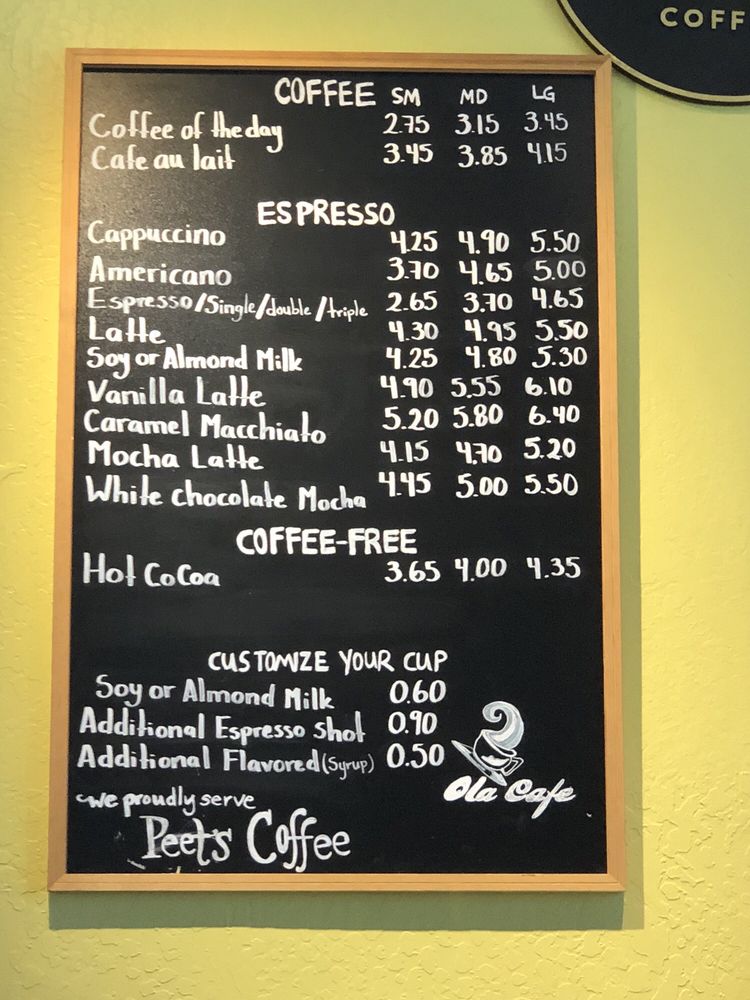 COFF
COFFEE SM MD LG
Coffee of the day 2.75 3.15 3.45
Cafe au lait 3.45 3.85 4.15
ESPRESSO
Cappuccino 4.25 4.90 5.50
Americano 3.70 4.65 5.00
Espresso/Single/double/triple 2.65 3.70 4.65
Latte 4.30 4.95 5.50
Soy or Almond Milk 4.25 4.80 5.30
Vanilla Latte 4.90 5.55 6.10
Caramel Macchiato 5.20 5.80 6.40
Mocha Latte 4.15 4.70 5.20
White chocolate Mocha 4.45 5.00 5.50
COFFEE-FREE
Hot CoCoa 3.65 4.00 4.35
CUSTOMIZE YOUR CUP
Soy or Almond Milk 0.60
Additional Espresso Shot 0.90
Additional Flavored (Syrup) 0.50
Ola Cafe
we proudly serve
Peet's Coffee